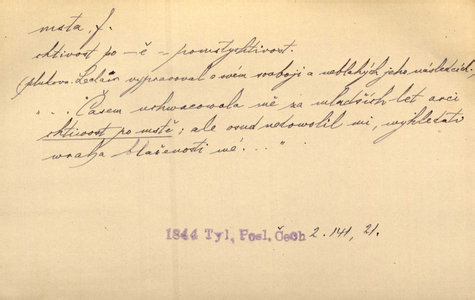 msta. f.
chtivost po –ě – pomstychtivost.
(plukovn. Leslain vypravoval o svém souboji a neblahých jeho následcích:
"... Časem uchwacowala mě za mladších let arci
chtiwost po mstě; ale osud nedowolil mi, wyhledati
wraha blaženosti mé..."
1844 Tyl, Posl. Čech 2. 141, 21.